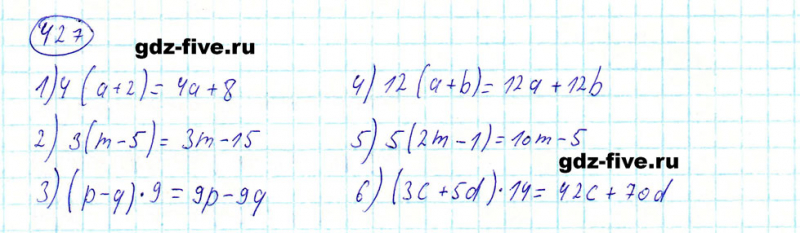 427
gdz-five.ru
1) 4(a+2)= 4a+8
4) 12(a+b)= 12a+12b
2) 3(m-5)= 3m-15
5) 5(2m-1)=10m-5
gdz-five.ru
3) (p-q)·9 = 9p-9q
6) (3c+5d)·14= 42c+70d